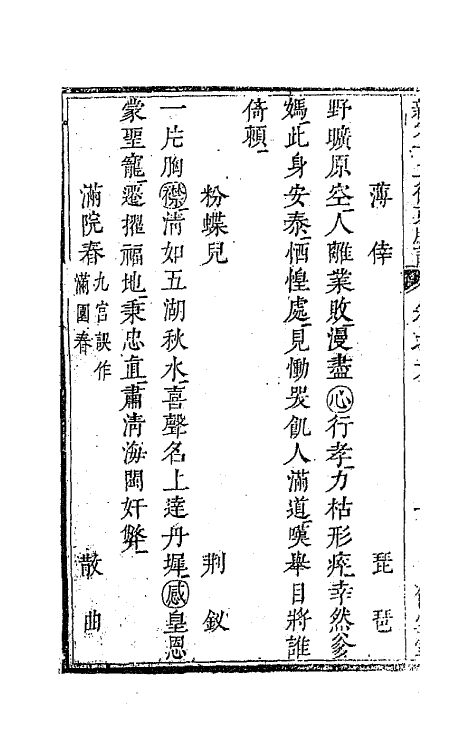 薄倖　琵琶
野曠原空人離業敗漫盡心行孝力枯形瘁幸然爹
媽此身安泰恓惶處見慟哭飢人滿道嘆舉目將誰
倚賴
粉蝶兒　荆釵
一片胸襟清如五湖秋水喜聲名上達丹墀感皇恩
蒙聖寵遷擢福地秉忠直肅清海閩奸弊
滿院春九宮誤作滿園春　散曲